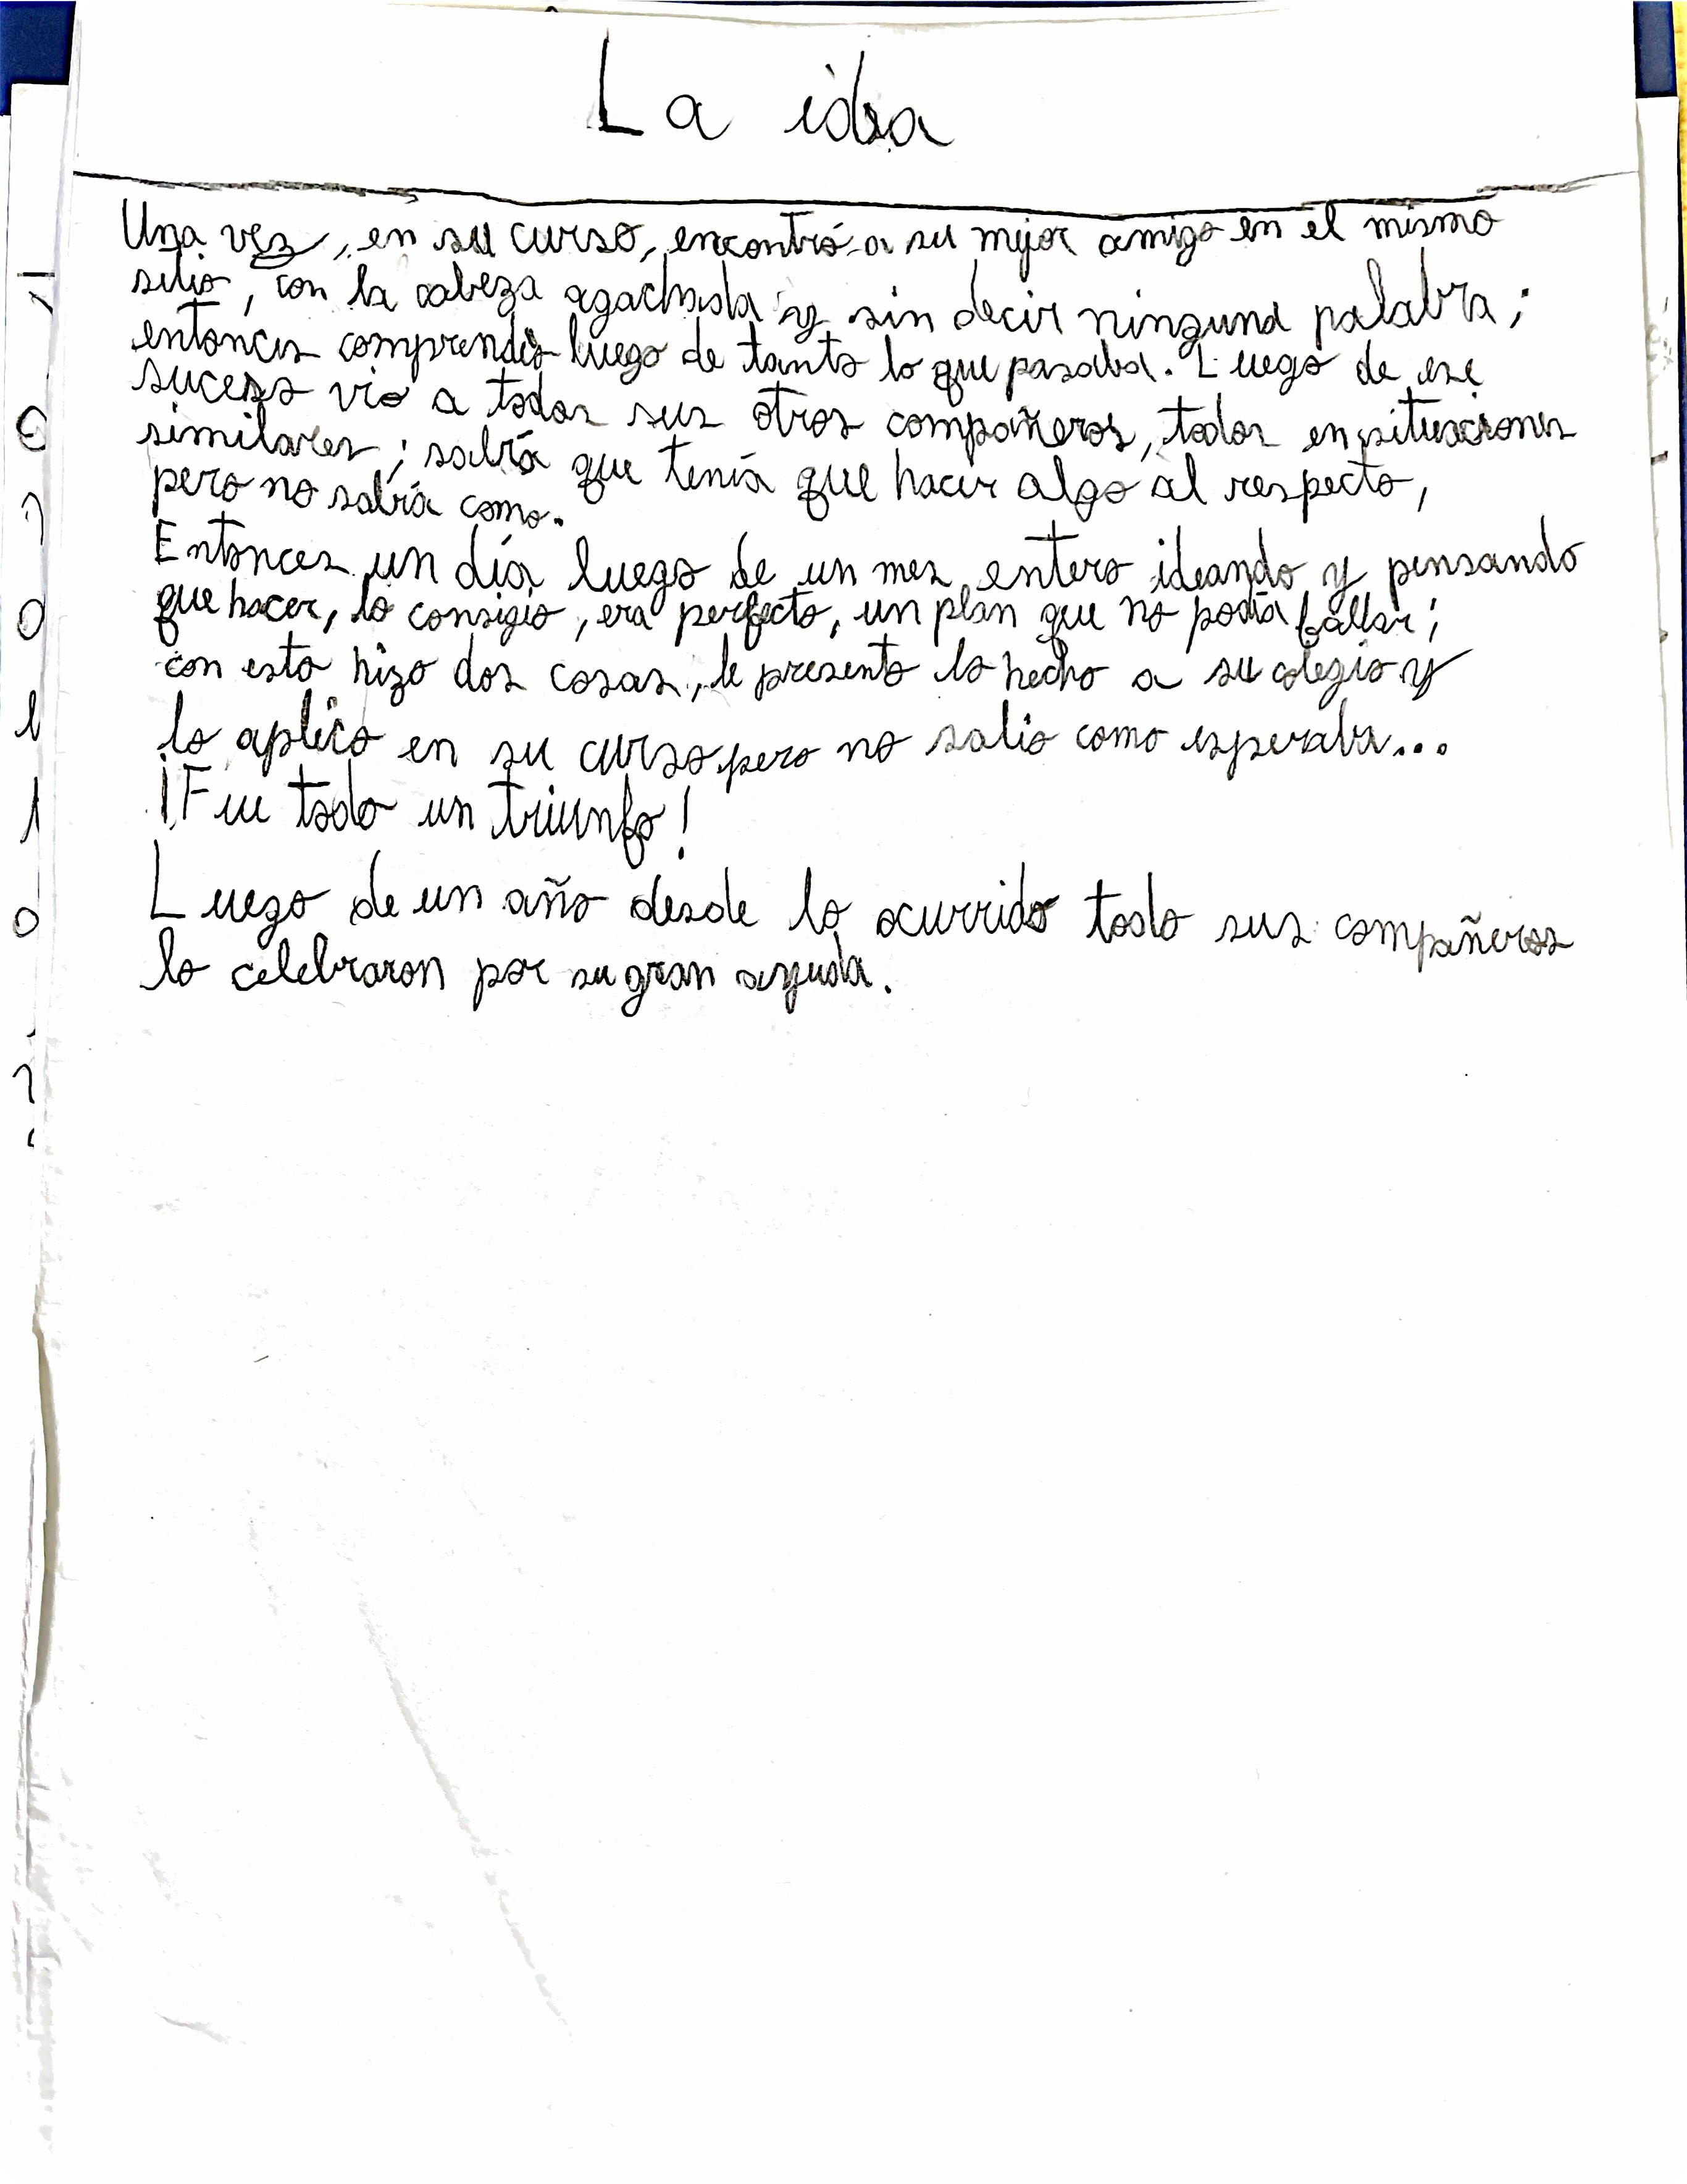 La idea
Una vez, en su curso, encontró a su mejor amigo en el mismo
sitio, con la cabeza agachada y sin decir ninguna palabra;
entonces comprendió luego de tanto lo que pasaba. Luego de ese
suceso vio a todos sus otros compañeros, todos en situaciones
similares; sabía que tenía que hacer algo al respecto,
pero no sabía como.
Entonces un día luego de un mes entero ideando y pensando
que hacer, lo consigio, era perfecto, un plan que no podía fallar;
con esto hizo dos cosas, le presento lo hecho a su colegio y
lo aplico en su curso pero no salio como esperaba...
¡Fue todo un triunfo!
Luego de un año desde lo ocurrido todo sus compañeros
lo celebraron por su gran ayuda.